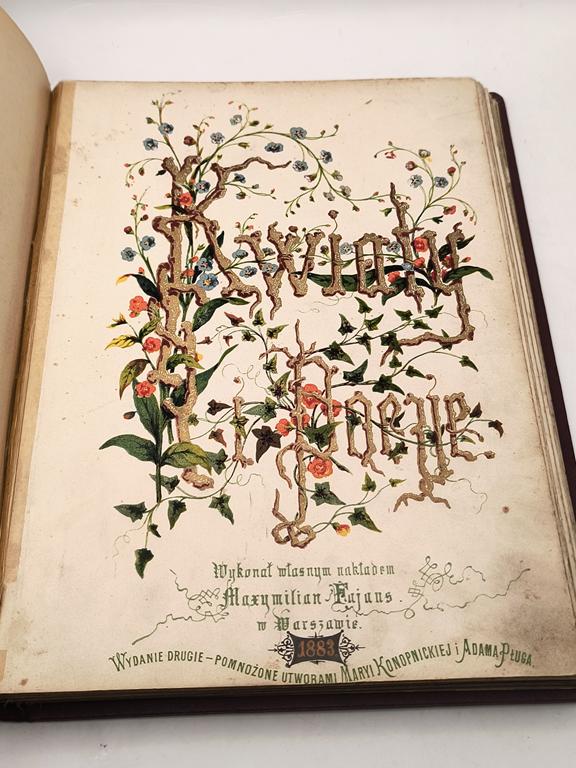 Kwiaty
i Poezye
Wykonał własnym nakładem
Maxymilian Fajans.
w Warszawie.
1883
WYDANIE DRUGIE – POMNOŻONE UTWORAMI MARYI KONOPNICKIEJ i ADAMA PŁUGA.